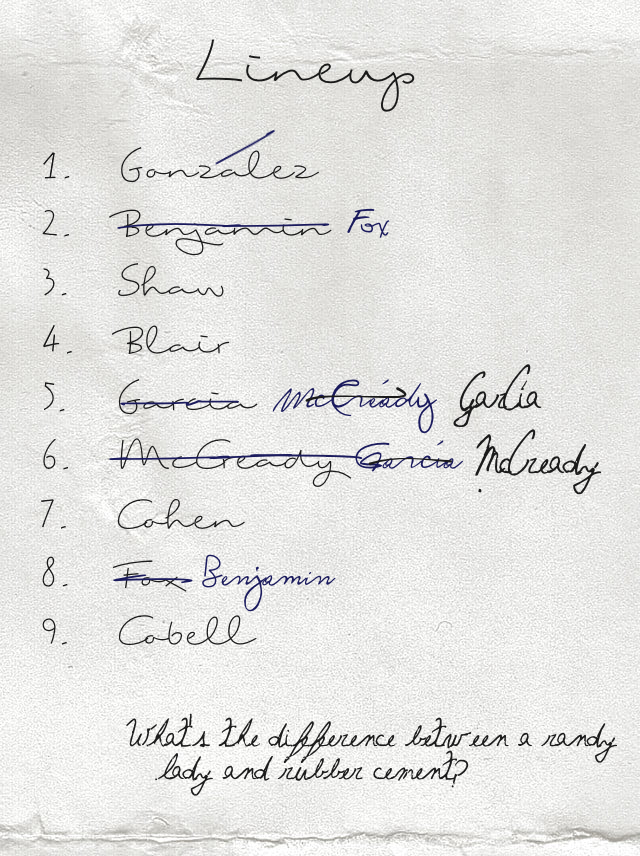 Lineup
1. González
2. Benjamin Fox
3. Shaw
4. Blair
5. Garcia McCready García
6. McCready García McCready
7. Cohen
8. Fox Benjamin
9. Cabell
What's the difference between a randy
lady and rubber cement?